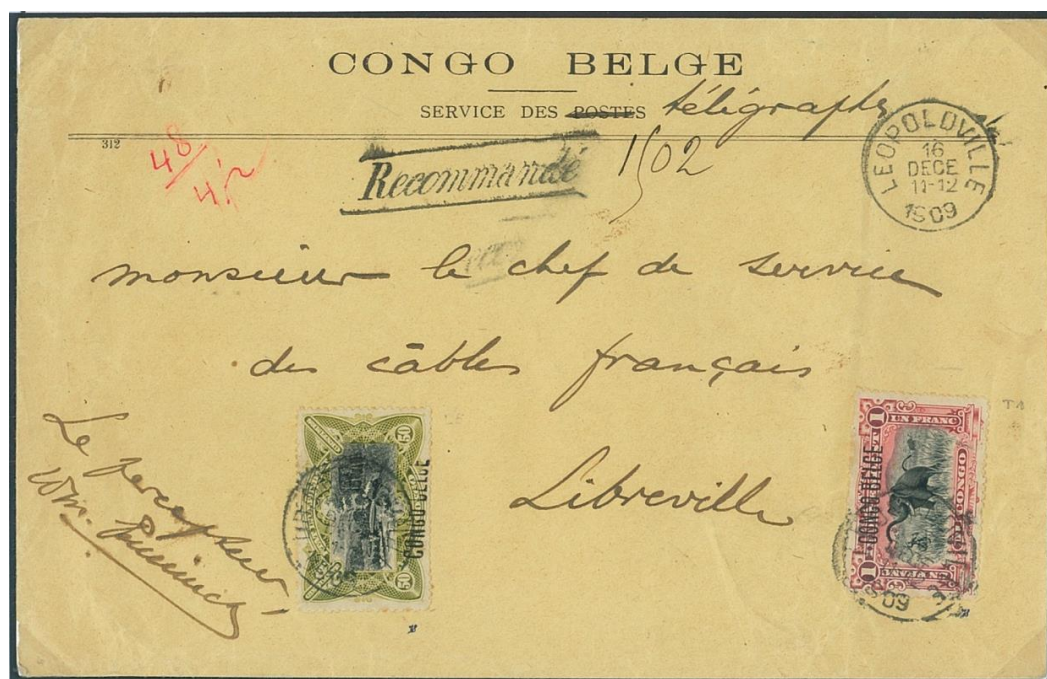 CONGO BELGE
SERVICE DES POSTES télégraphes
312
48/
Recommandé
1502
LEOPOLDVILLE
16
DECE
11-12
1909
monsieur le chef de service
des câbles français
Libreville
Le percepteur
50 50
CONGO BELGE
50
1 UN FRANC 1
CONGO BELGE
DU CONGO
1 UN FRANC
09
T1